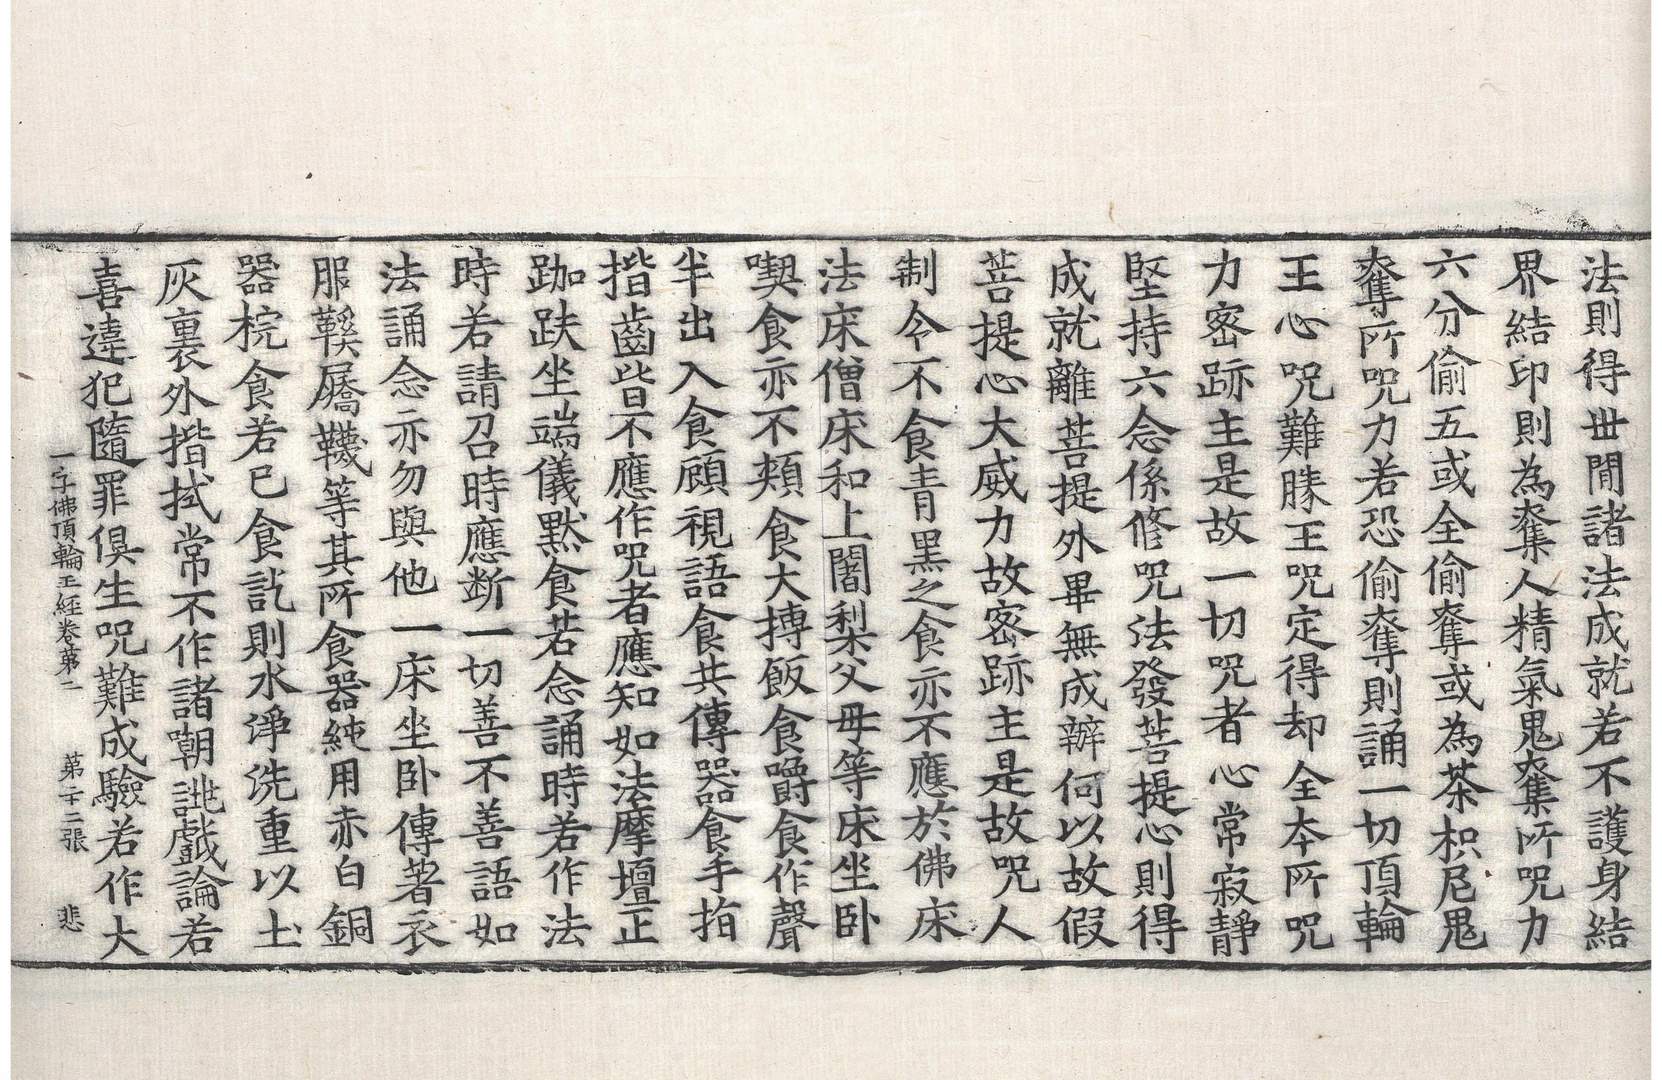 法則得世閒諸法成就若不護身結
界結印則為奪人精氣鬼奪所呪力
六分偷五或全偷奪或為茶枳尼鬼
奪所呪力若恐偷奪則誦一切頂輪
王心呪難勝王呪定得却全本所呪
力密跡主是故一切呪者心常寂靜
堅持六念係修呪法發菩提心則得
成就離菩提外畢無成辦何以故假
菩提心大威力故密跡主是故呪人
制令不食青黑之食亦不應於佛床
法床僧床和上闍梨父母等床坐卧
喫食亦不頰食大摶飯食嚼食作聲
半出入食顧視語食共傳器食手拍
揩齒皆不應作呪者應知如法摩壇正
跏趺坐端儀默食若念誦時若作法
時若請召時應断一切善不善語如
法誦念亦勿與他一床坐卧傳著衣
服鞵屩韈等其所食器純用赤白銅
器椀食若已食訖則水淨洗重以土
灰裏外揩拭常不作諸嘲誂戲論若
喜違犯隨罪俱生呪難成驗若作大
一字佛頂輪王經卷第二　第二十二張　悲